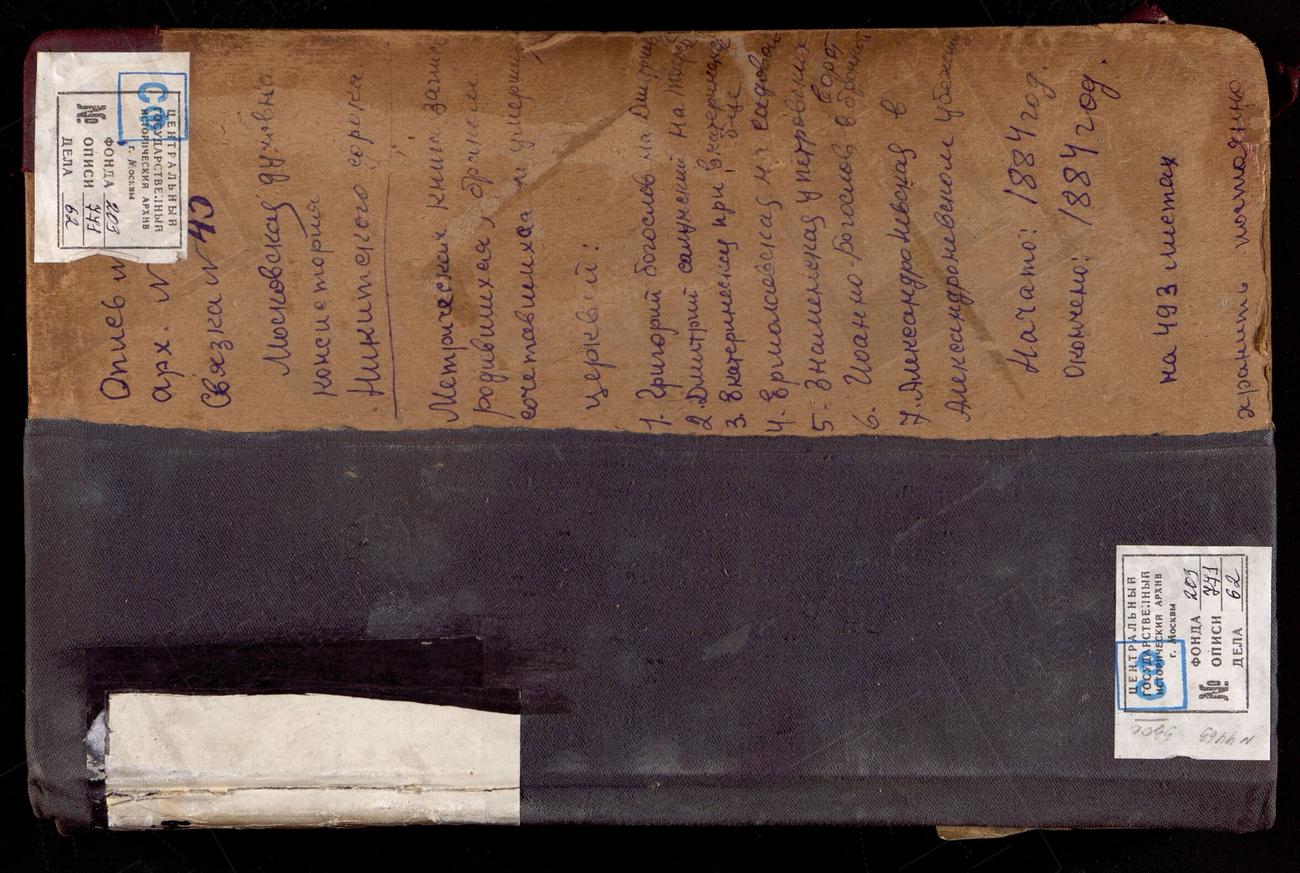 ЦЕНТРАЛЬНЫЙ
ГОСУДАРСТВЕННЫЙ
ИСТОРИЧЕСКИЙ АРХИВ
г. Москвы
ФОНДА 203
№ ОПИСИ 771
ДЕЛА 62
Опись
Арх. N
Связка N 45
Московская духовна
консистория
Никитского сорока
Метрическия книги запис
родившихся, браком
сочетавшихся и умерших
церквей:
1. Григорий богослов на Дмитр
2. Дмитрий салунский на Твер
3. Екатеринеский при екатеринин
4. Ермоловская на садовой
5. Знаменская у петровских ворот
6. Иоанно Богослов в бронной
7. Александроневская в
Александроневском убежищ
Начато: 1884 год.
Окончено: 1884 год.
на 493 листах
хранить постоянно
ЦЕНТРАЛЬНЫЙ
ГОСУДАРСТВЕННЫЙ
ИСТОРИЧЕСКИЙ АРХИВ
г. Москвы
ФОНДА 203
№ ОПИСИ 771
ДЕЛА 62